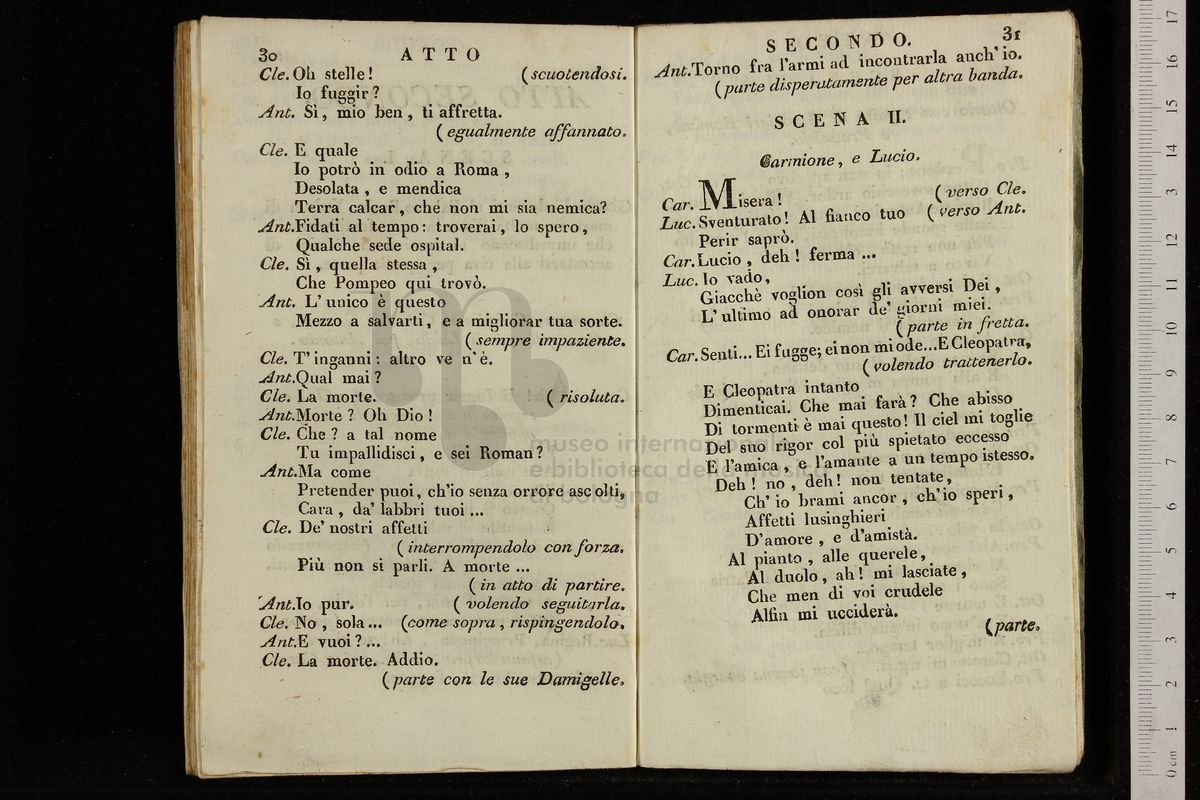 30 ATTO
Cle. Oh stelle! (scuotendosi.
Io fuggir?
Ant. Sì, mio ben, ti affretta.
(egualmente affannato.
Cle. E quale
Io potrò in odio a Roma,
Desolata, e mendica
Terra calcar, che non mi sia nemica?
Ant. Fidati al tempo: troverai, lo spero,
Qualche sede ospital.
Cle. Sì, quella stessa,
Che Pompeo qui trovò.
Ant. L'unico è questo
Mezzo a salvarti, e a migliorar tua sorte.
(sempre impaziente.
Cle. T'inganni: altro ve n'è.
Ant. Qual mai?
Cle. La morte. (risoluta.
Ant. Morte? Oh Dio!
Cle. Che? a tal nome
Tu impallidisci, e sei Roman?
Ant. Ma come
Pretender puoi, ch'io senza orrore ascolti,
Cara, da' labbri tuoi...
Cle. De' nostri affetti
(interrompendolo con forza.
Più non si parli. A morte...
(in atto di partire.
Ant. Io pur. (volendo seguitarla.
Cle. No, sola... (come sopra, rispingendolo.
Ant. E vuoi?...
Cle. La morte. Addio.
(parte con le sue Damigelle.
SECONDO. 31
Ant. Torno fra l'armi ad incontrarla anch'io.
(parte disperatamente per altra banda.
SCENA II.
Carmione, e Lucio.
Car. Misera! (verso Cle.
Luc. Sventurato! Al fianco tuo (verso Ant.
Perir saprò.
Car. Lucio, deh! ferma...
Luc. Io vado,
Giacchè voglion così gli avversi Dei,
L'ultimo ad onorar de' giorni miei.
(parte in fretta.
Car. Senti... Ei fugge; ei non mi ode... E Cleopatra,
(volendo trattenerlo.
E Cleopatra intanto
Dimenticai. Che mai farà? Che abisso
Di tormenti è mai questo! Il ciel mi toglie
Del suo rigor col più spietato eccesso
E l'amica, e l'amante a un tempo istesso.
Deh! no, deh! non tentate,
Ch'io brami ancor, ch'io speri,
Affetti lusinghieri
D'amore, e d'amistà.
Al pianto, alle querele,
Al duolo, ah! mi lasciate,
Che men di voi crudele
Alfin mi ucciderà.
(parte.
museo internazionale
e biblioteca della musica
di bologna
0 cm 1 2 3 4 5 6 7 8 9 10 11 12 13 14 15 16 17